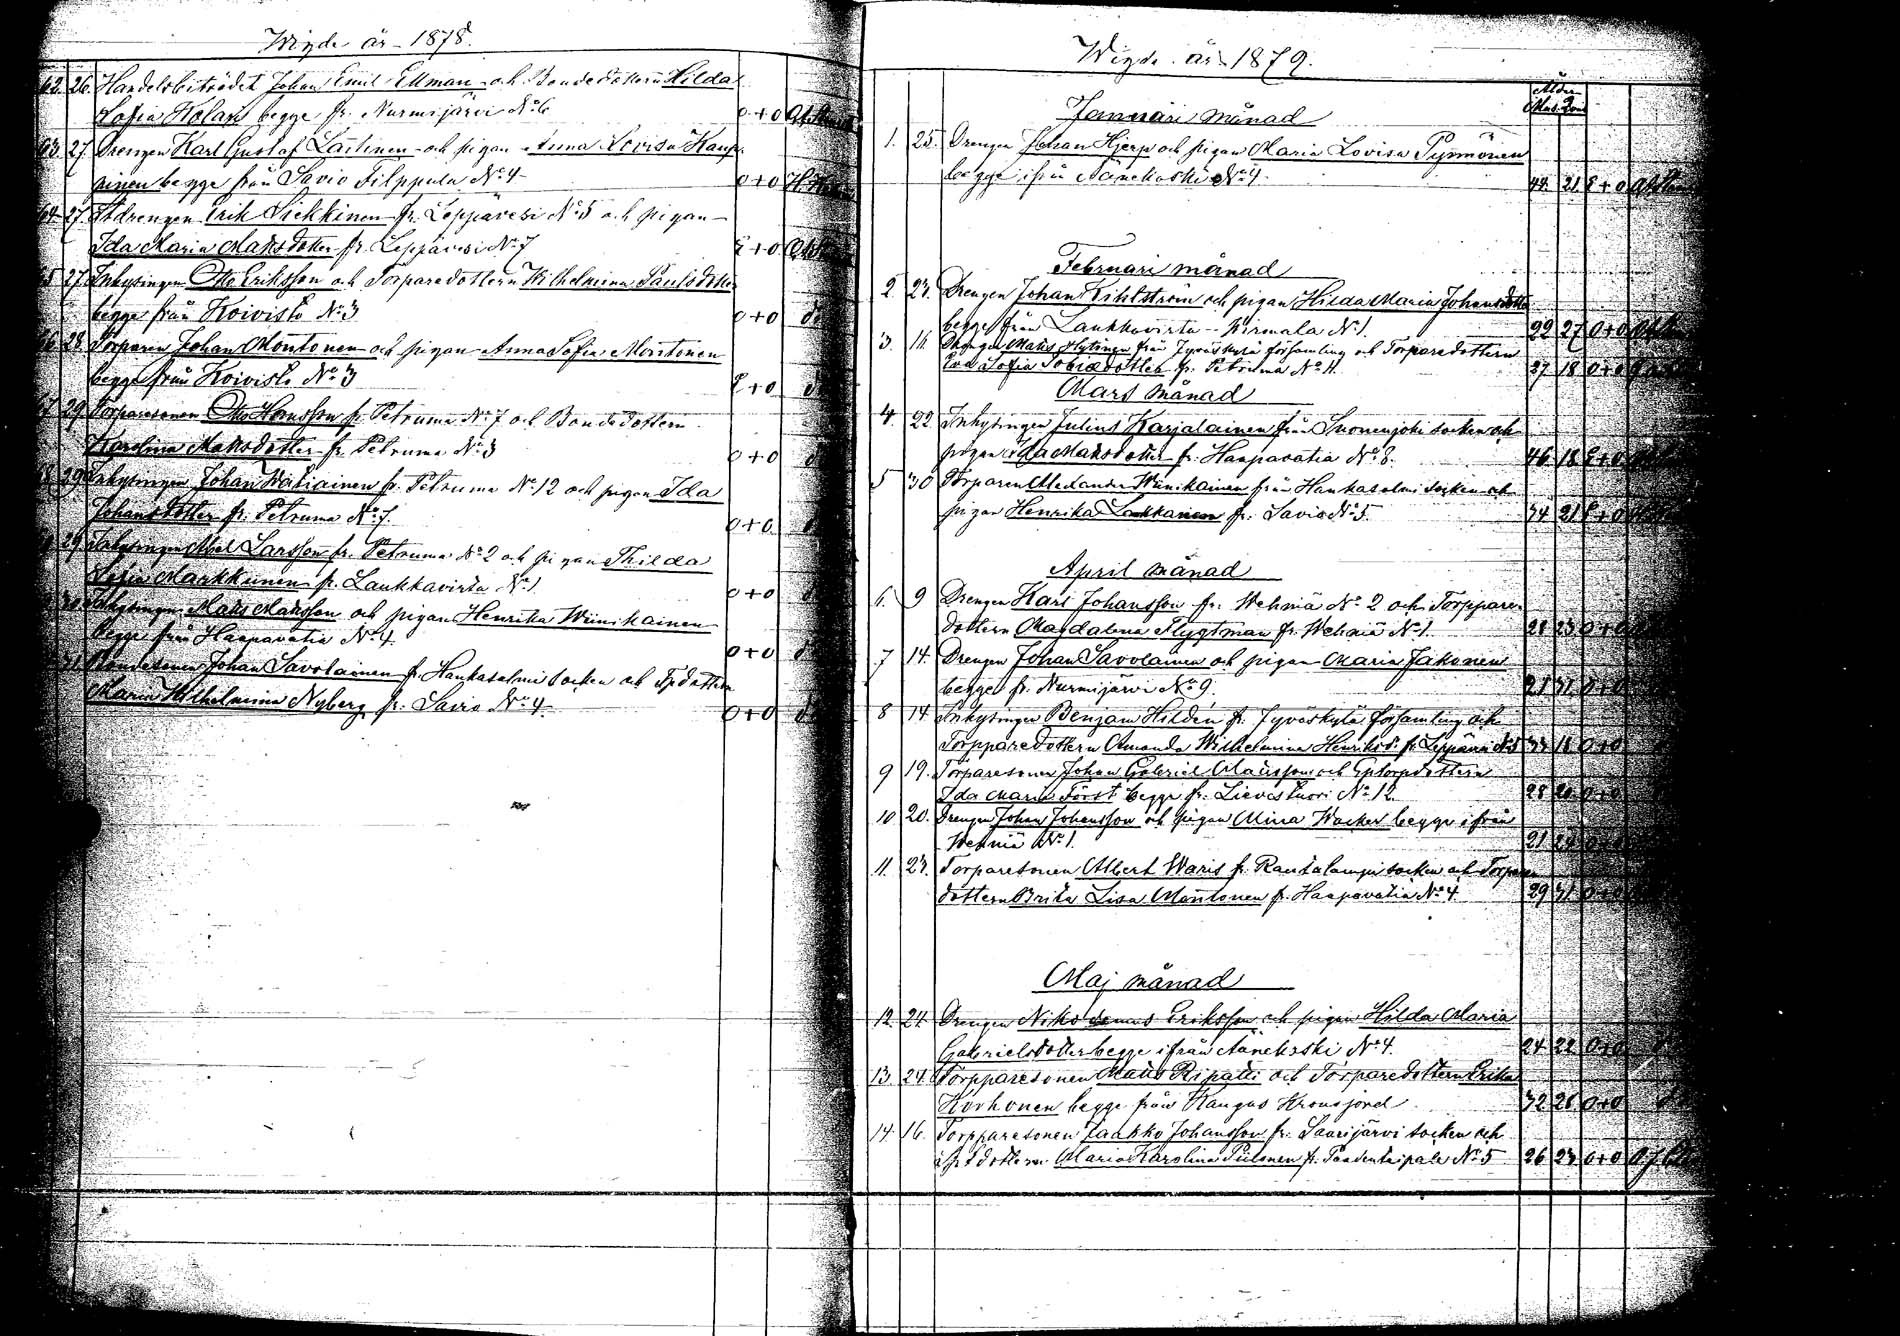 Wigde år 1878.
62. 26. Handelsbiträdet Johan Emil Ellman och Bondedottern Hilda
Sofia Kolari begge fr. Nurmijärvi No 6 0+0
63. 27. Drengen Karl Gustaf Laitinen och pigan Anna Lovisa Kaup-
pinen begge från Savio Filppula No 4 0+0
64. 27. Drengen Erik Siekkinen fr. Leppävesi No 5 och pigan
Ida Maria Matsdotter fr. Leppävesi No 7 E+0
65 27. Inhysingen Otto Eriksson och Torparedottern Wilhelmina Paulsdotter
begge från Koivisto No 3 0+0 do
66 28. Torparen Johan Montonen och pigan Anna Sofia Montonen
begge från Koivisto No 3 E+0 do
67 29. Torparesonen Otto fr. Petruma No 7 och Bondedottern
Karolina Matsdotter fr. Petruma No 3 0+0
68 29. Inhysingen Johan Wätiäinen fr. Petruma No 12 och pigan Ida
Johansdotter fr. Petruma No 7. 0+0
29. Inhysingen Abel Larsson fr. Petruma No 2 och pigan Thilda
Sofia Markkunen fr. Laukkavirta No 1 0+0
30. Inhysingen Mats Matsson och pigan Henrika Wiinikainen
begge från Haapavatia No 4. 0+0
31. Bondesonen Johan Savolainen fr. Hankasalmi socken och Tpdottern
Maria Wilhelmina Nyberg fr. Savio No 4. 0+0
Wigde år 1879.
Ålder
Man. Qvin.
Januari månad
1. 25. Drengen Johan Hjerp och pigan Maria Lovisa Pynnönen
begge ifrån Äänekoski No 4. 44. 21 E+0
Februari månad
2 23. Drengen Johan Kihlström och pigan Hilda Maria Johansdotter
begge från Laukkavirta - Kirmala No 1. 22 27 0+0
3. 16 Drengen Mats Hytinen från Jyväskylä församling och Torparedottern
Eva Sofia Tobiedotter fr. Petruma No 11. 27 18 0+0
Mars månad
4. 22. Inhysingen Julius Karjalainen från Suonenjoki socken och
pigan Ida Matsdotter fr. Haapavatia No 8. 46 18 E+0
5 30 Torparen Alexander Wiinikainen från Hankasalmi socken och
pigan Henrika Laukkanen fr. Savio No 5. 34 21 E+0
April månad
6. 9 Drengen Karl Johansson fr. Wehniä No 2 och Torppare-
dottern Magdalena Flygtman fr. Wehniä No 1. 28 23 0+0
7 14. Drengen Johan Savolainen och pigan Maria Jakonen
begge fr. Nurmijärvi No 9. 21 31 0+0
8 14. Inhysingen Benjam Hildén fr. Jyväskylä församling och
Torpparedottern Amanda Wilhelmina Henriksd. fr. Leppävesi No 5 33 18 0+0
9 19. Torparesonen Johan Gabriel Mattsson och Eptorpdottern
Ida Maria Först begge fr. Lievestuori No 12. 28 20 0+0
10 20. Drengen Johan Johansson och pigan Mina Wacker begge ifrån
Wehniä No 1. 21 24 0+0
11. 23. Torparesonen Albert Waris fr. Rautalampi socken och Torpare-
dottern Brita Lisa Montonen fr. Haapavatia No 4. 29 31 0+0
Maj månad
12. 24. Drengen Nikodemus Eriksson och pigan Hilda Maria
Gabrielsdotter begge ifrån Äänekoski No 4. 24 22 0+0
13. 24. Torpparesonen Matts Ripatti och Torparedottern Erika
Korhonen begge från Kangas Kronojord 32 26 0+0
14. 16. Torpparesonen Jaakko Johansson fr. Saarijärvi socken och
dottern Maria Karolina Piilonen fr. Paadentaipale No 5 26 23 0+0